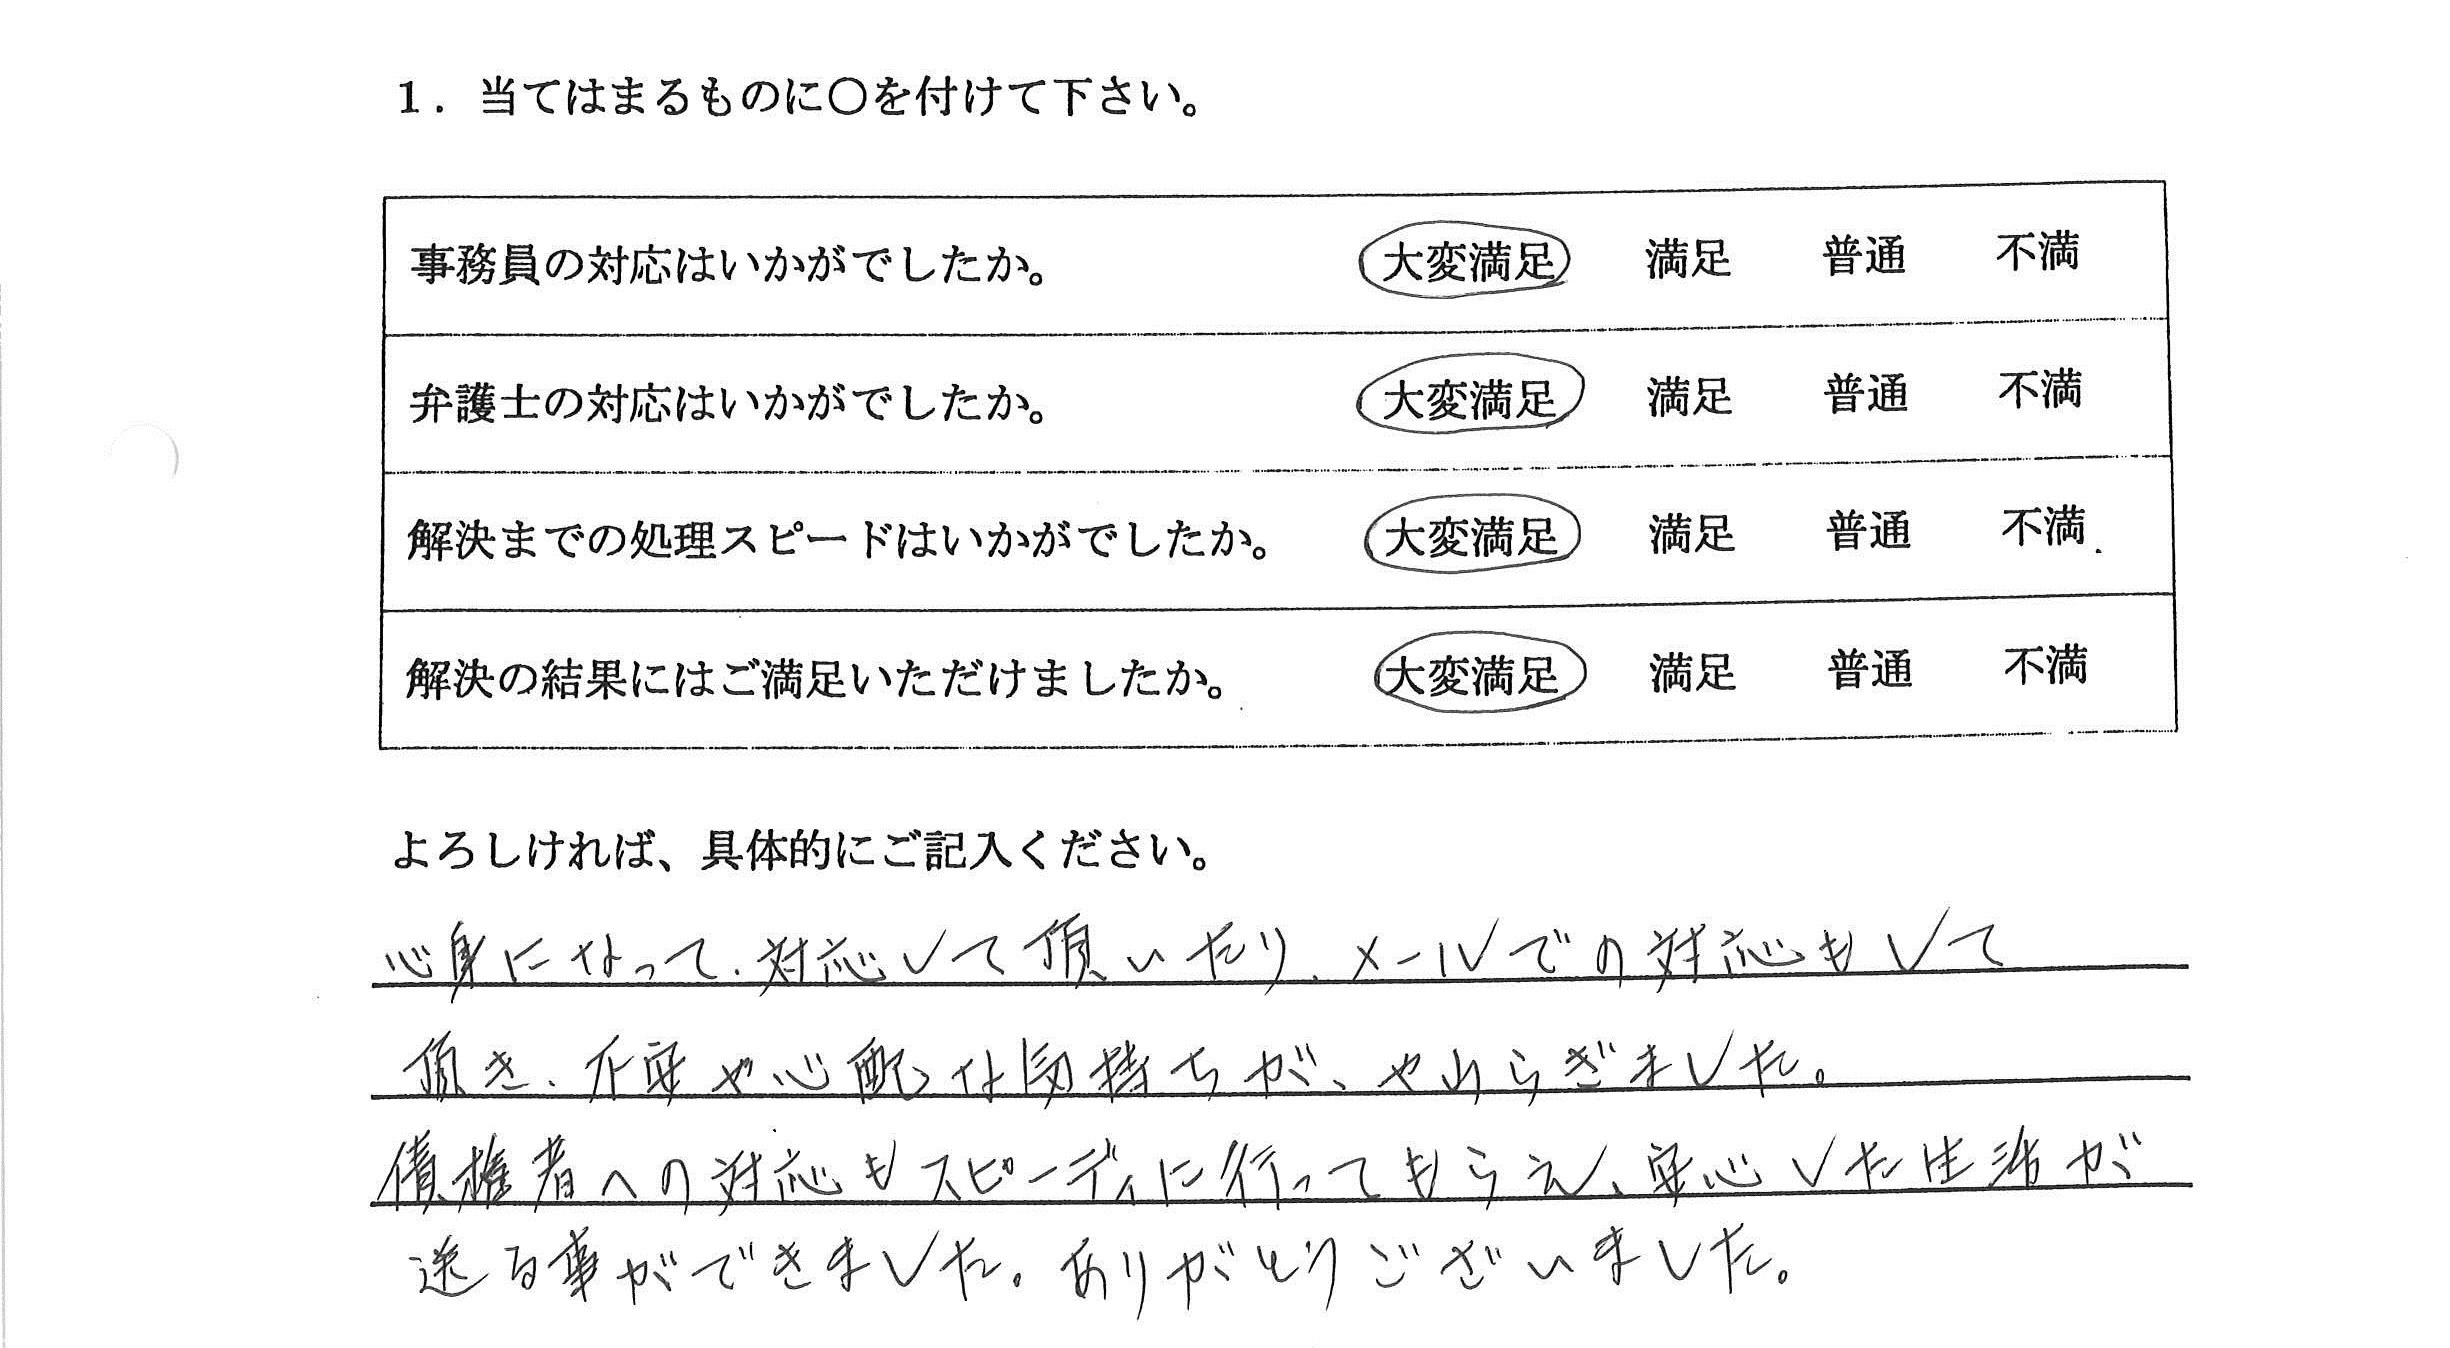 1．当てはまるものに〇を付けて下さい。
事務員の対応はいかがでしたか。 大変満足 満足 普通 不満
弁護士の対応はいかがでしたか。 大変満足 満足 普通 不満
解決までの処理スピードはいかがでしたか。 大変満足 満足 普通 不満
解決の結果にはご満足いただけましたか。 大変満足 満足 普通 不満
よろしければ、具体的にご記入ください。
心身になって、対応して頂いたり、メールでの対応もして
頂き、不安や心配な気持ちが、やわらぎました。
債権者への対応もスピーディに行ってもらえ、安心した生活が
送る事ができました。ありがとうございました。